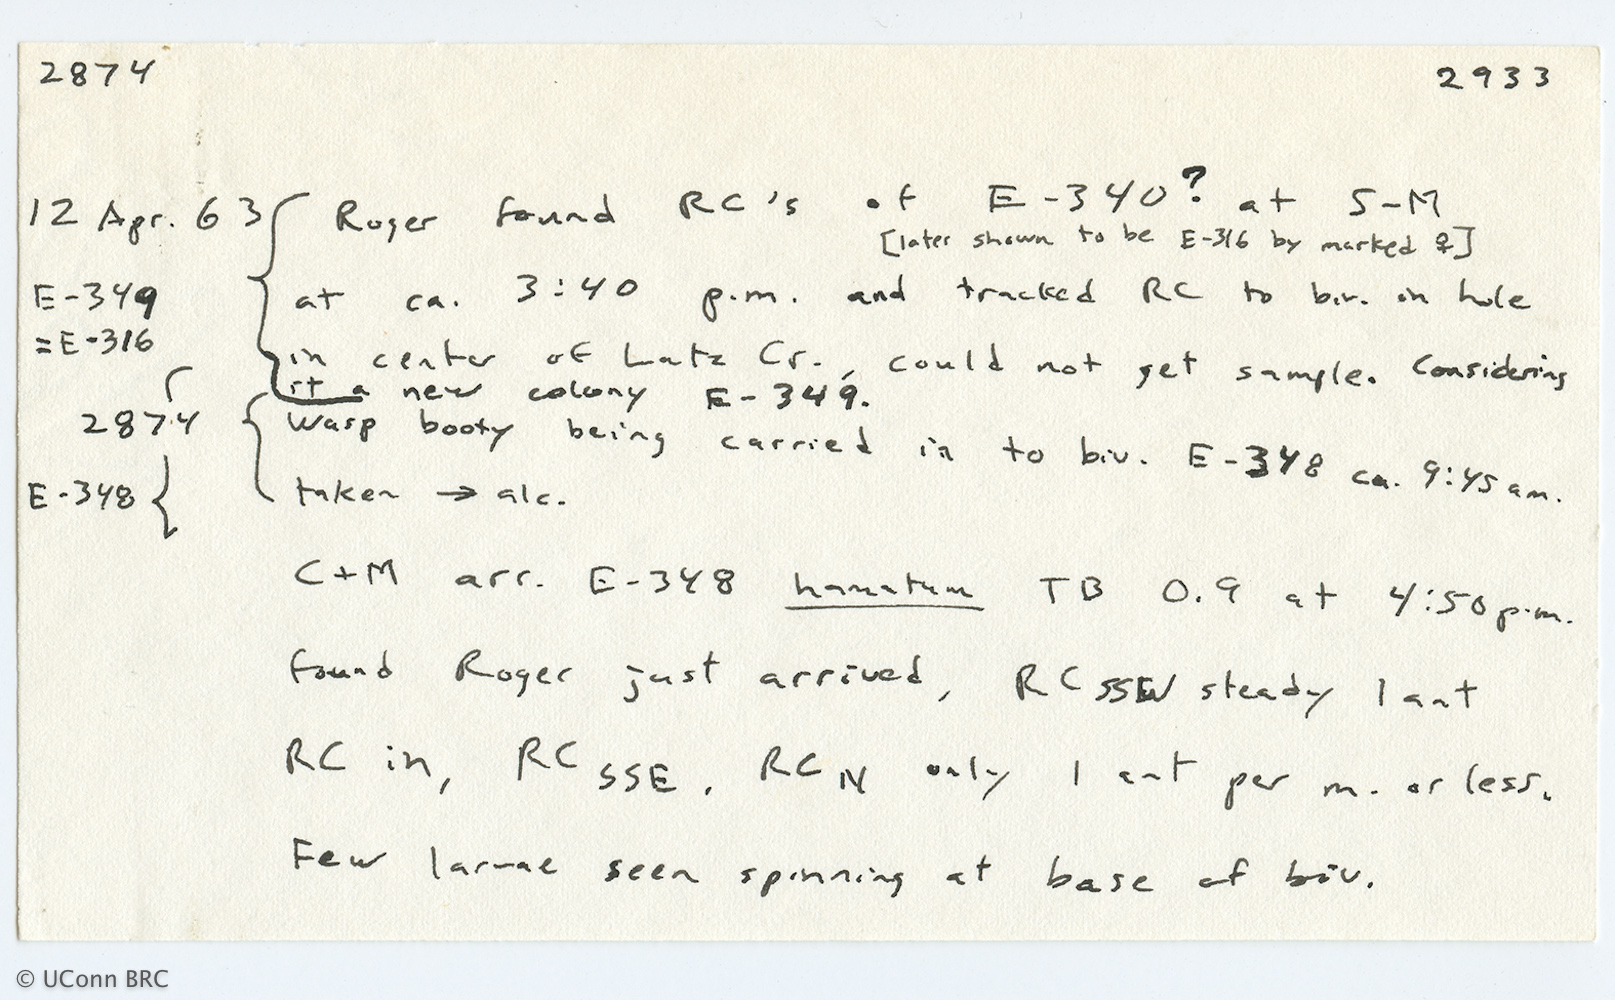 2874 2933
12 Apr. 63 Roger found RC's of E-340? at S-M
[later shown to be E-316 by marked ♀]
E-349 at ca. 3:40 p.m. and tracked RC to biv. in hole
=E-316 in center of Lutz Cr., could not get sample. Considering
it a new colony E-349.
2874 Wasp booty being carried in to biv. E-348 ca. 9:45 am.
E-348 taken → alc.
C+M arr. E-348 hamatum TB 0.9 at 4:50 p.m.
found Roger just arrived, RC SSW steady 1 ant
RC in, RC SSE, RC N only 1 ant per m. or less.
Few larvae seen spinning at base of biv.
© UConn BRC